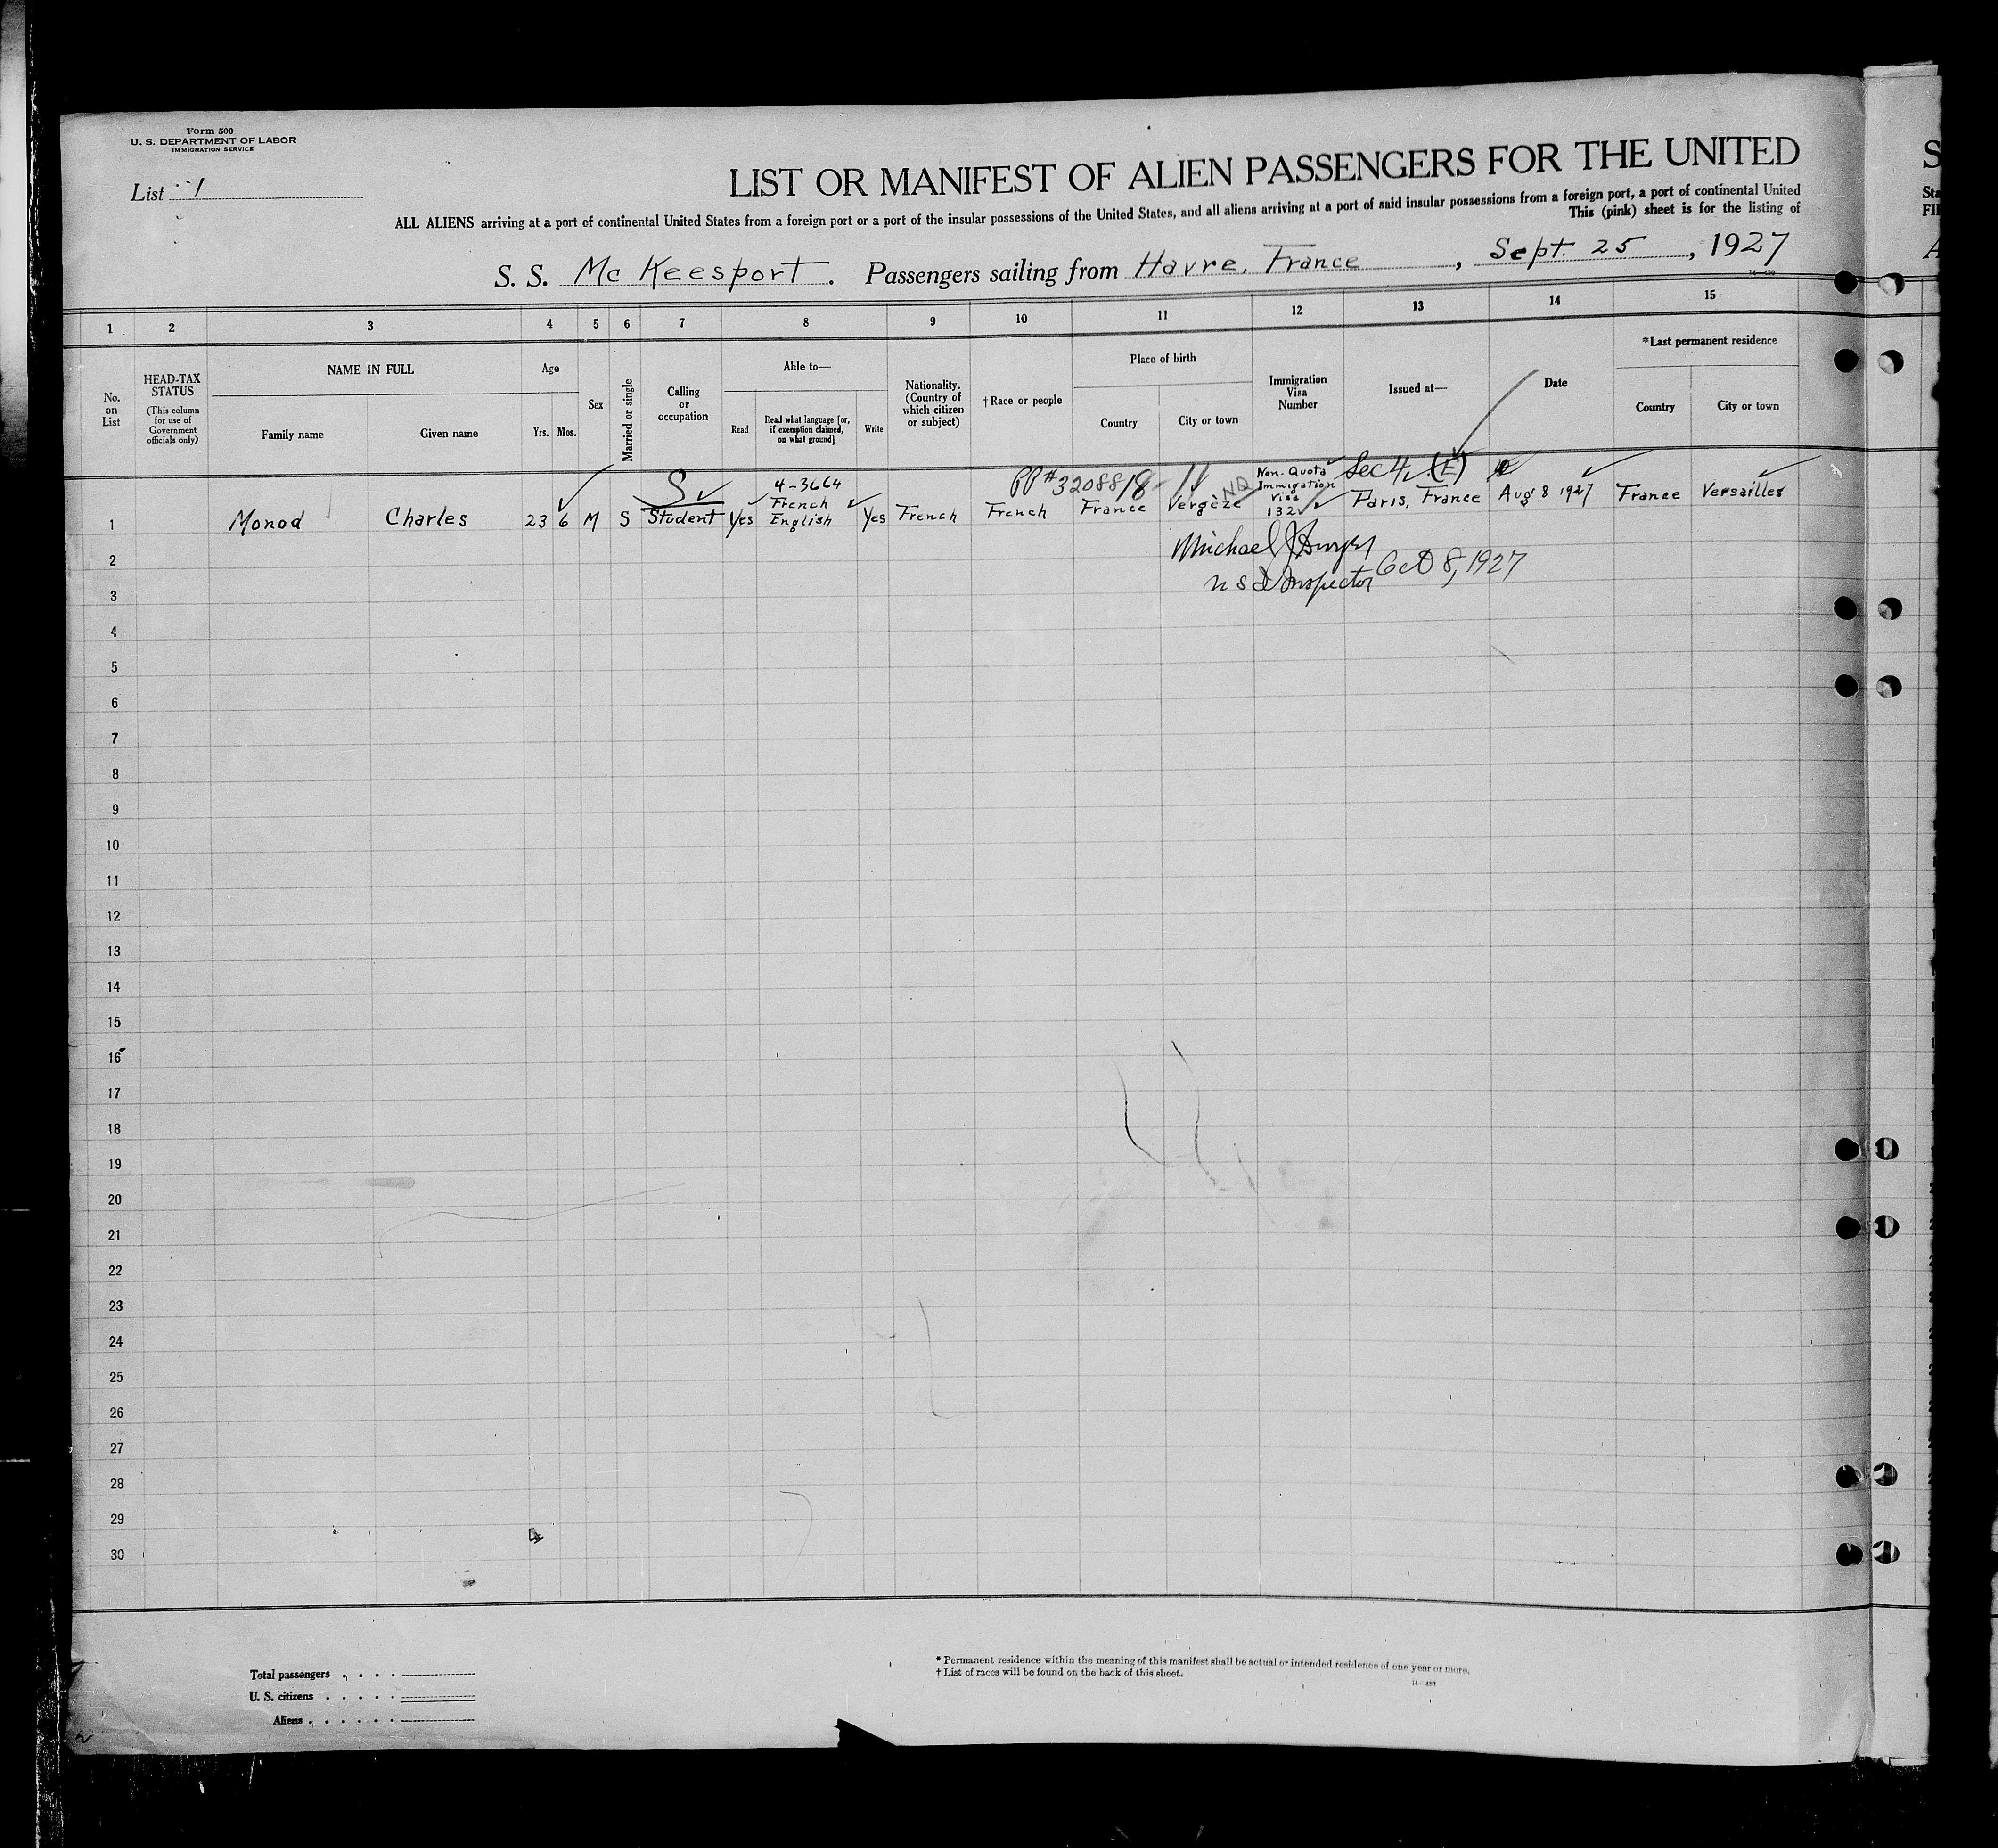 Form 500
U. S. DEPARTMENT OF LABOR
IMMIGRATION SERVICE
List 1
LIST OR MANIFEST OF ALIEN PASSENGERS FOR THE UNITED
ALL ALIENS arriving at a port of continental United States from a foreign port or a port of the insular possessions of the United States, and all aliens arriving at a port of said insular possessions from a foreign port, a port of continental United
This (pink) sheet is for the listing of
S. S. Mc Keesport. Passengers sailing from Havre, France, Sept. 25, 1927
1 2 3 4 5 6 7 8 9 10 11 12 13 14 15
No. on List
HEAD-TAX STATUS
(This column for use of Government officials only)
NAME IN FULL
Family name
Given name
Age
Yrs. Mos.
Sex
Married or single
Calling or occupation
Able to—
Read
Read what language [or, if exemption claimed, on what ground]
Write
Nationality. (Country of which citizen or subject)
†Race or people
Place of birth
Country
City or town
Immigration Visa Number
Issued at—
Date
*Last permanent residence
Country
City or town
S 4-3664 PP#32088/8 ND Non-Quota Immigration Visa Sec 4 (E)
1 Monod Charles 23 6 M S Student Yes French English Yes French French France Vergèze 132 Paris, France Aug 8 1927 France Versailles
Michael J Dwyer
Inspector Oct 8, 1927
2
3
4
5
6
7
8
9
10
11
12
13
14
15
16
17
18
19
20
21
22
23
24
25
26
27
28
29
30
Total passengers
U. S. citizens
Aliens
* Permanent residence within the meaning of this manifest shall be actual or intended residence of one year or more.
† List of races will be found on the back of this sheet.